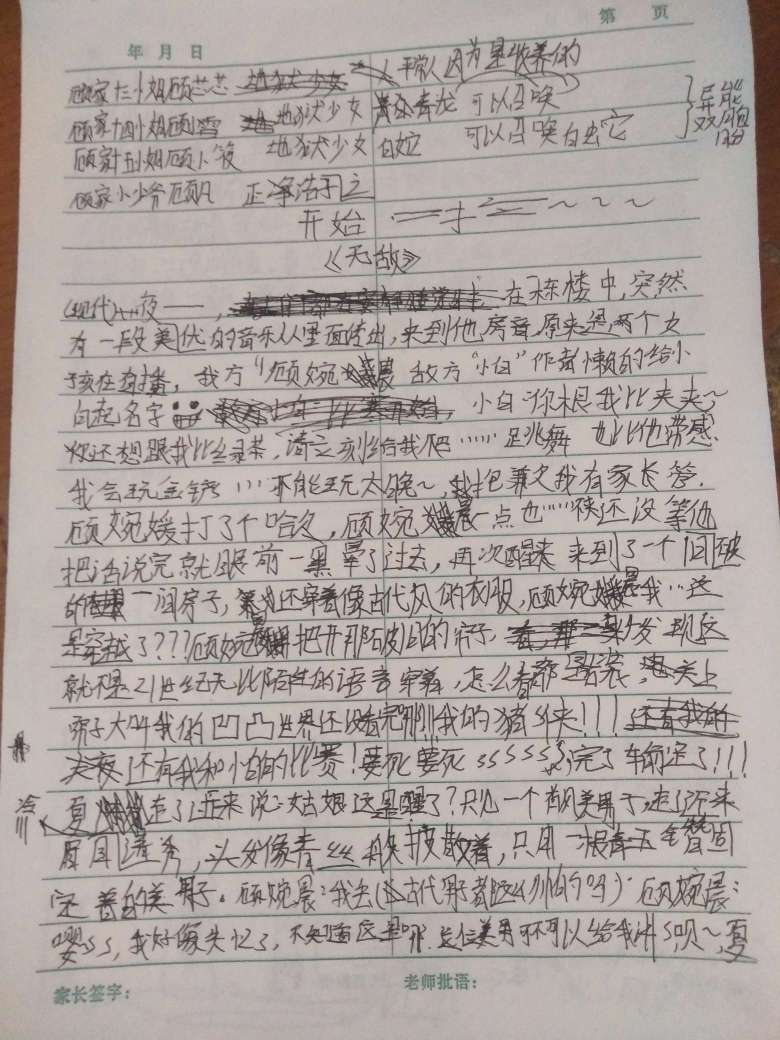 第 页
年 月 日
顾家十三小姐顾芯芯 平常人因为是收养的
顾家十四小姐顾雪 地狱少女 青龙 可以召唤
顾家十五小姐顾小筱 地狱少女 白蛇 可以召唤白蛇它
异能双胞胎
顾家小少爷顾凡 正净浩
开始
《无敌》
(现代)夜一, 在一栋楼中,突然
有一段美优的音乐从里面传出,来到他房音,原来是两个女
孩在直播,我方"顾婉晨 敌方"小白"作者懒的给小
白起名字 小白:你跟我比夹夹~
你还想跟我比绿茶,请立刻给我爬……足兆舞 也比他带感
我会玩金铲…不能玩太晚~,我抱歉又我有家长管.
顾婉媛打了个哈欠,顾婉晨一点也……挨还没等他
把话说完就眼前一黑晕了过去,再次醒来 来到了一个旧破
的 一间房子,还穿着像古代风的衣服,顾婉晨:我…这
是穿越了???顾婉 把开那破旧的帘子, 发现这
就不是21世纪无比陌生的语言穿着,怎么看都是古装, 关上
帘子大叫我的凹凸世界还没看完啊!!!我的猪 来!!!
还有我和小白的比赛!要死要死sssss,完了输定了!!!
夏 走了进来说:姑娘这是醒了?只见一个 美男子,走了进来
眉目清秀,头发像青丝一般披散着,只用一根青玉 固
定着的美男子。顾婉晨:我去(这古代男子都这么帅的吗) 顾婉晨:
嘤ss,我好像失忆了,不知道这是哪.这位美男可不可以给我讲s呗~,夏
冷
家长签字: 老师批语: